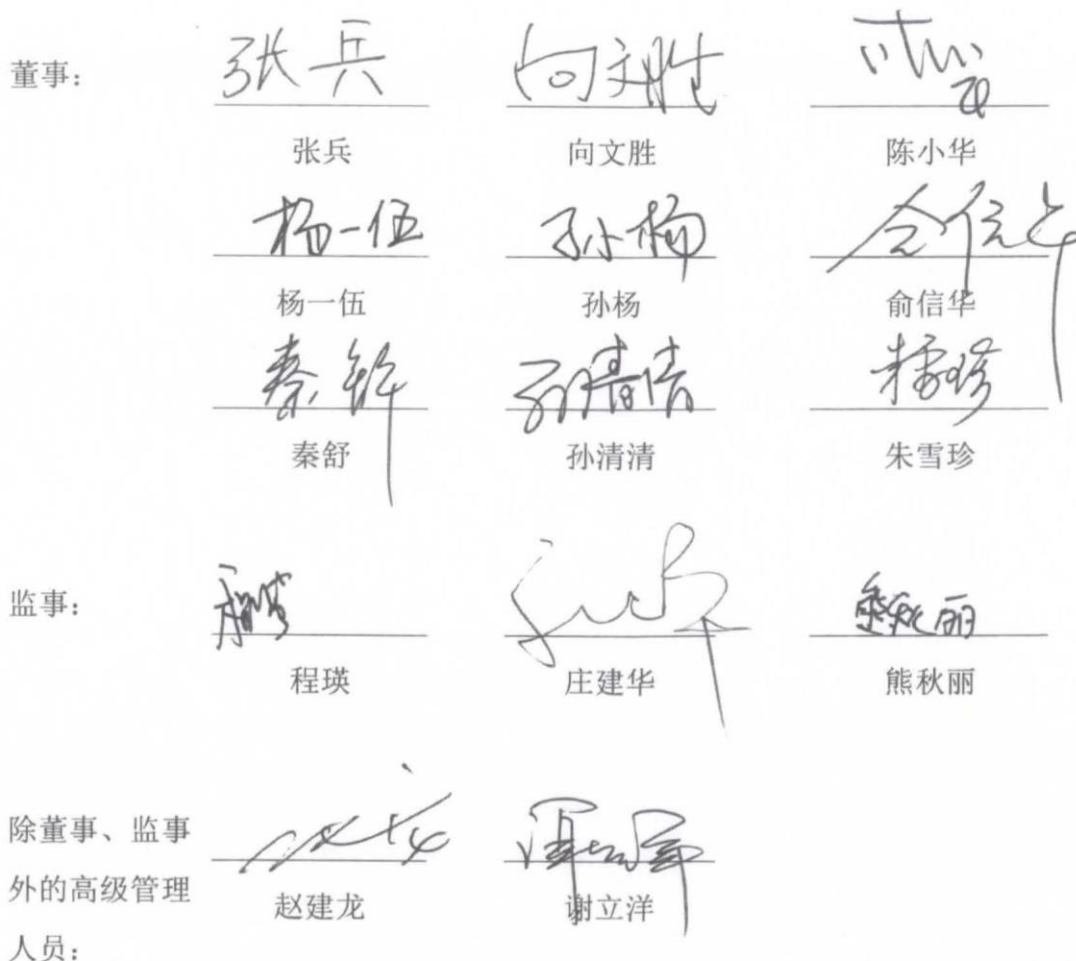 董事：
张兵 向文胜
张兵 向文胜 陈小华
杨一伍 孙杨
杨一伍 孙杨 俞信华
秦舒 孙清清 朱雪珍
监事：
熊秋丽
程瑛 庄建华 熊秋丽
除董事、监事
外的高级管理
赵建龙 谢立洋
人员：